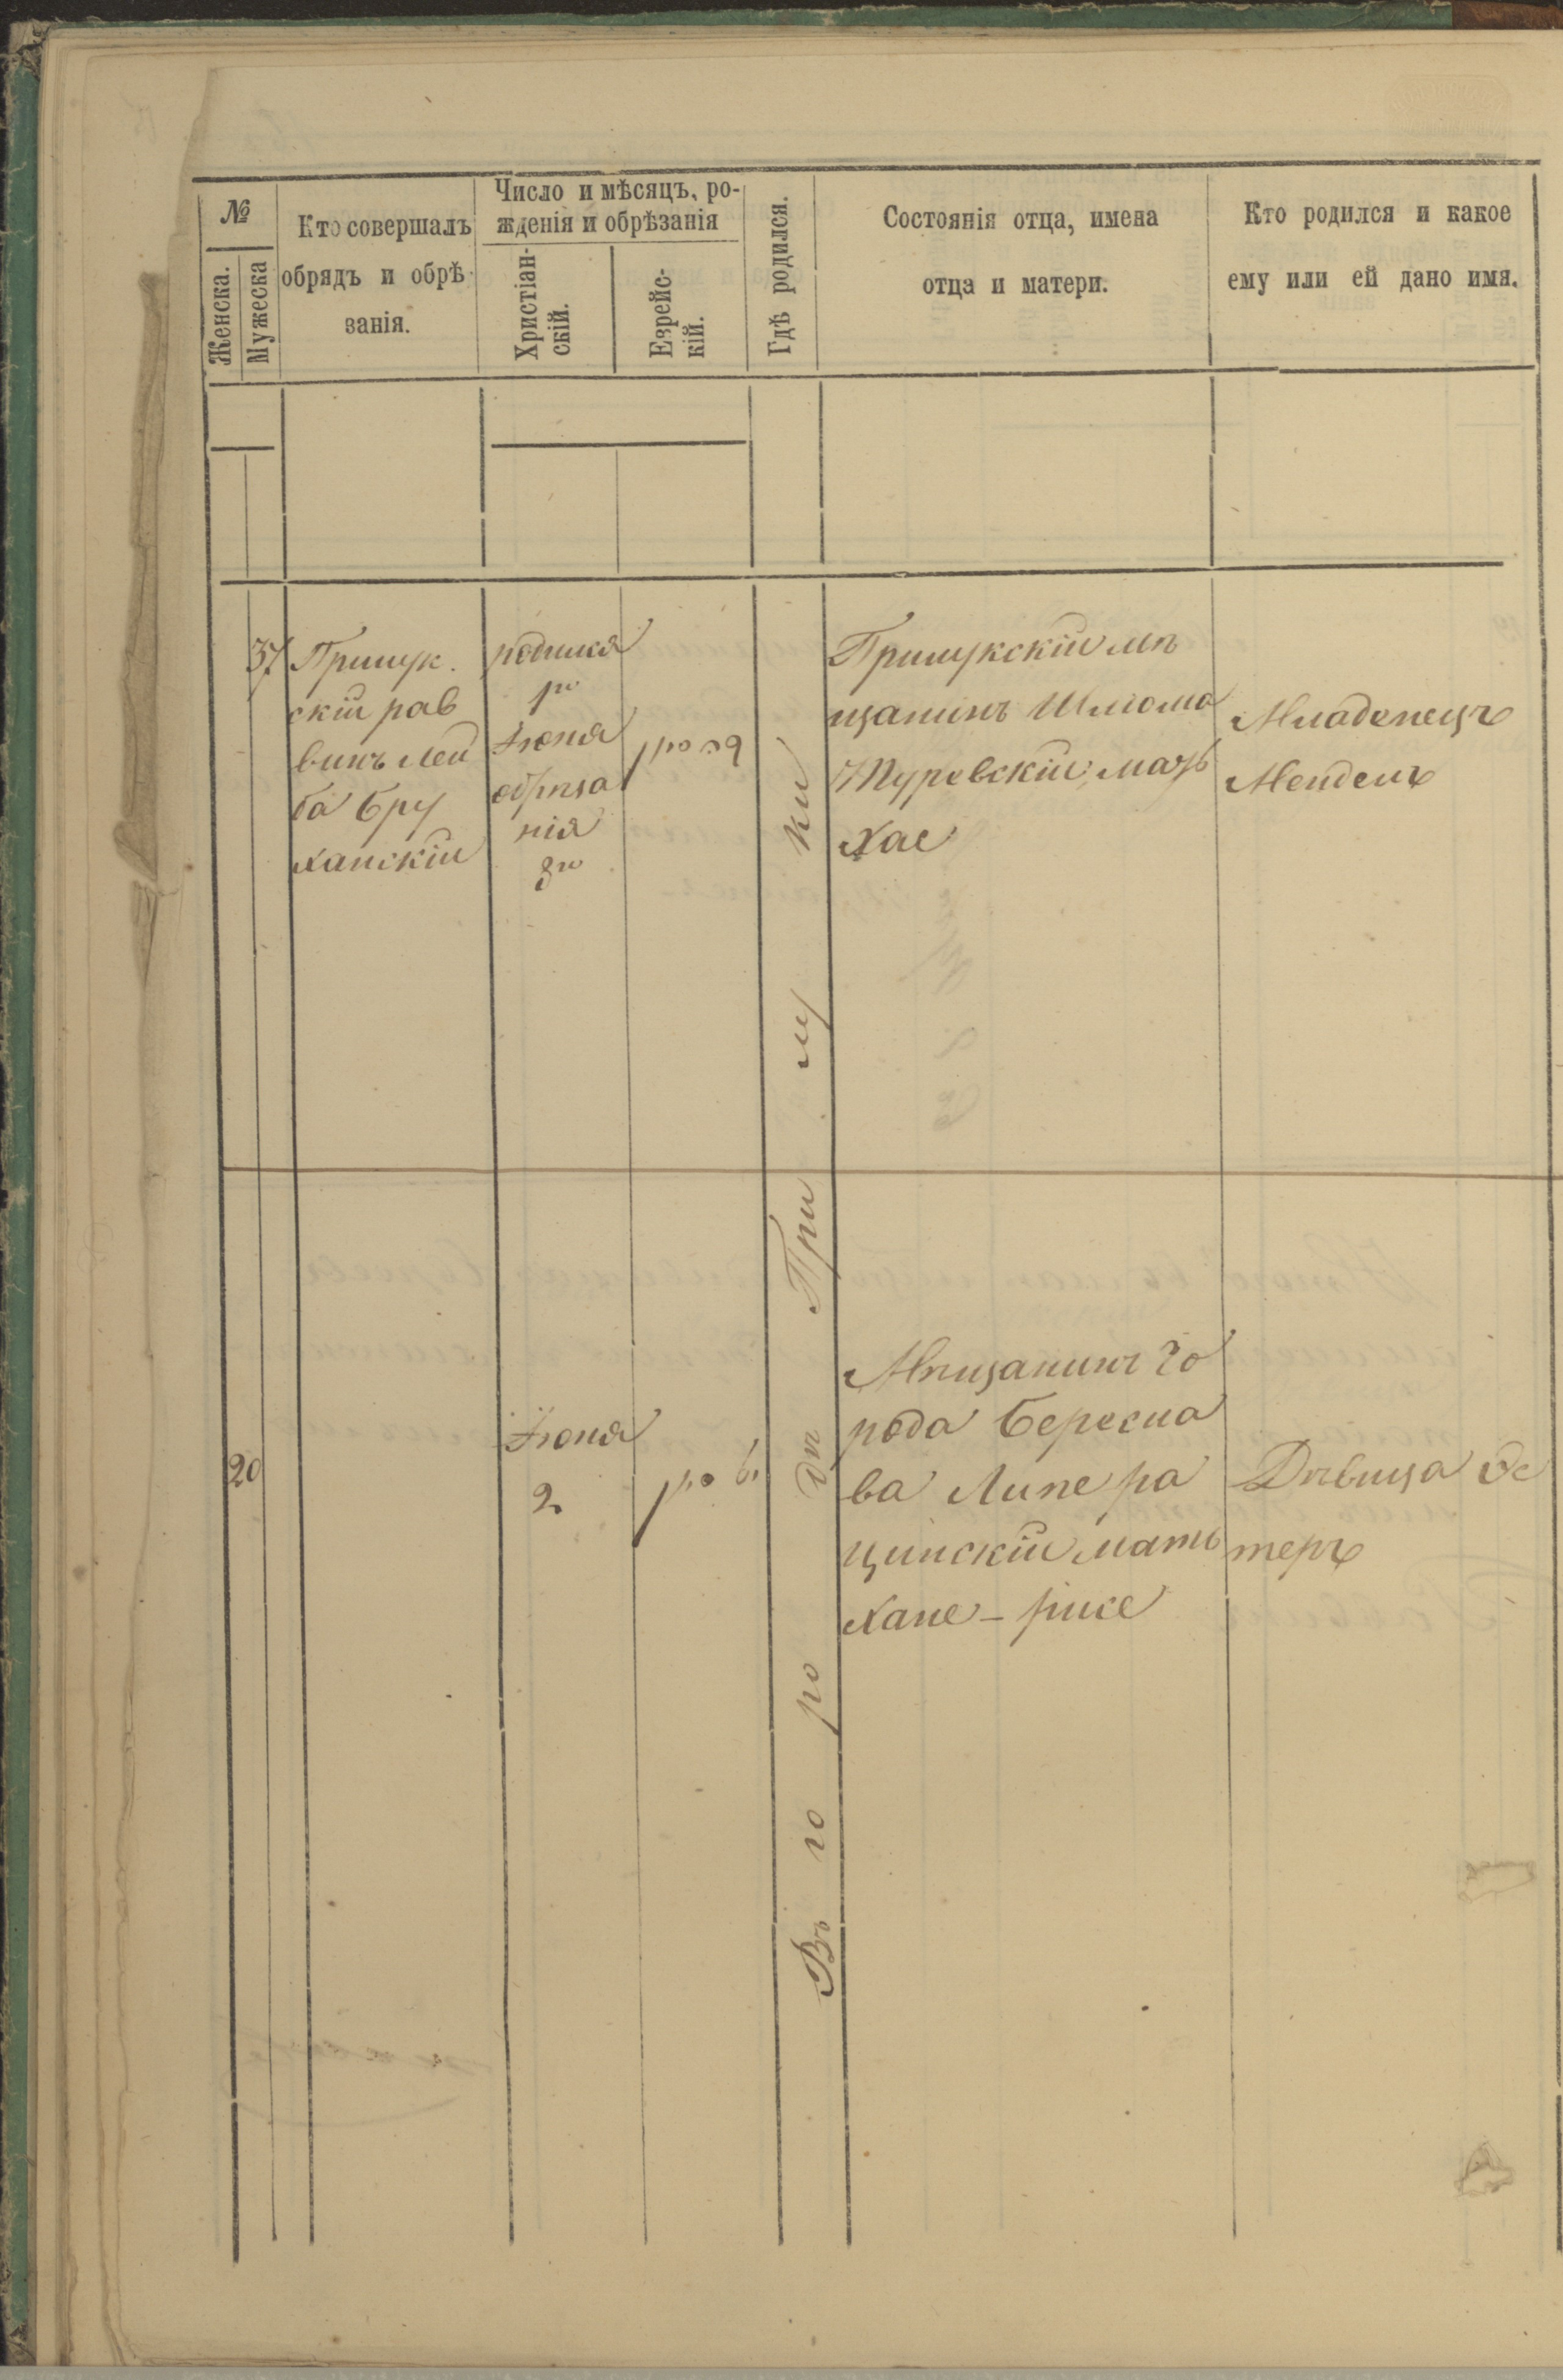 №
Женска.
Мужеска
Кто совершалъ
обрядъ и обрѣ-
занія.
Число и мѣсяцъ, ро-
жденія и обрѣзанія
Христіан-
скій.
Еврейс-
кій.
Гдѣ родился.
Состоянія отца, имена
отца и матери.
Кто родился и какое
ему или ей дано имя.
37
Прилук.
скій рав
винъ Лей
ба Бру
ханскій
родился
1го
Іюня
обрѣза
нія
8го
Прилукскій мѣ
щанинъ Шлёма
Туревскій; мать
Хае
Младенецъ
Мендель
Въ городѣ Прилуки
20
Іюня
2
Мѣщанинъ го
рода Бересла
ва Липе Ра
цинскій мать
Хане-рисе
Дѣвица Эс
теръ